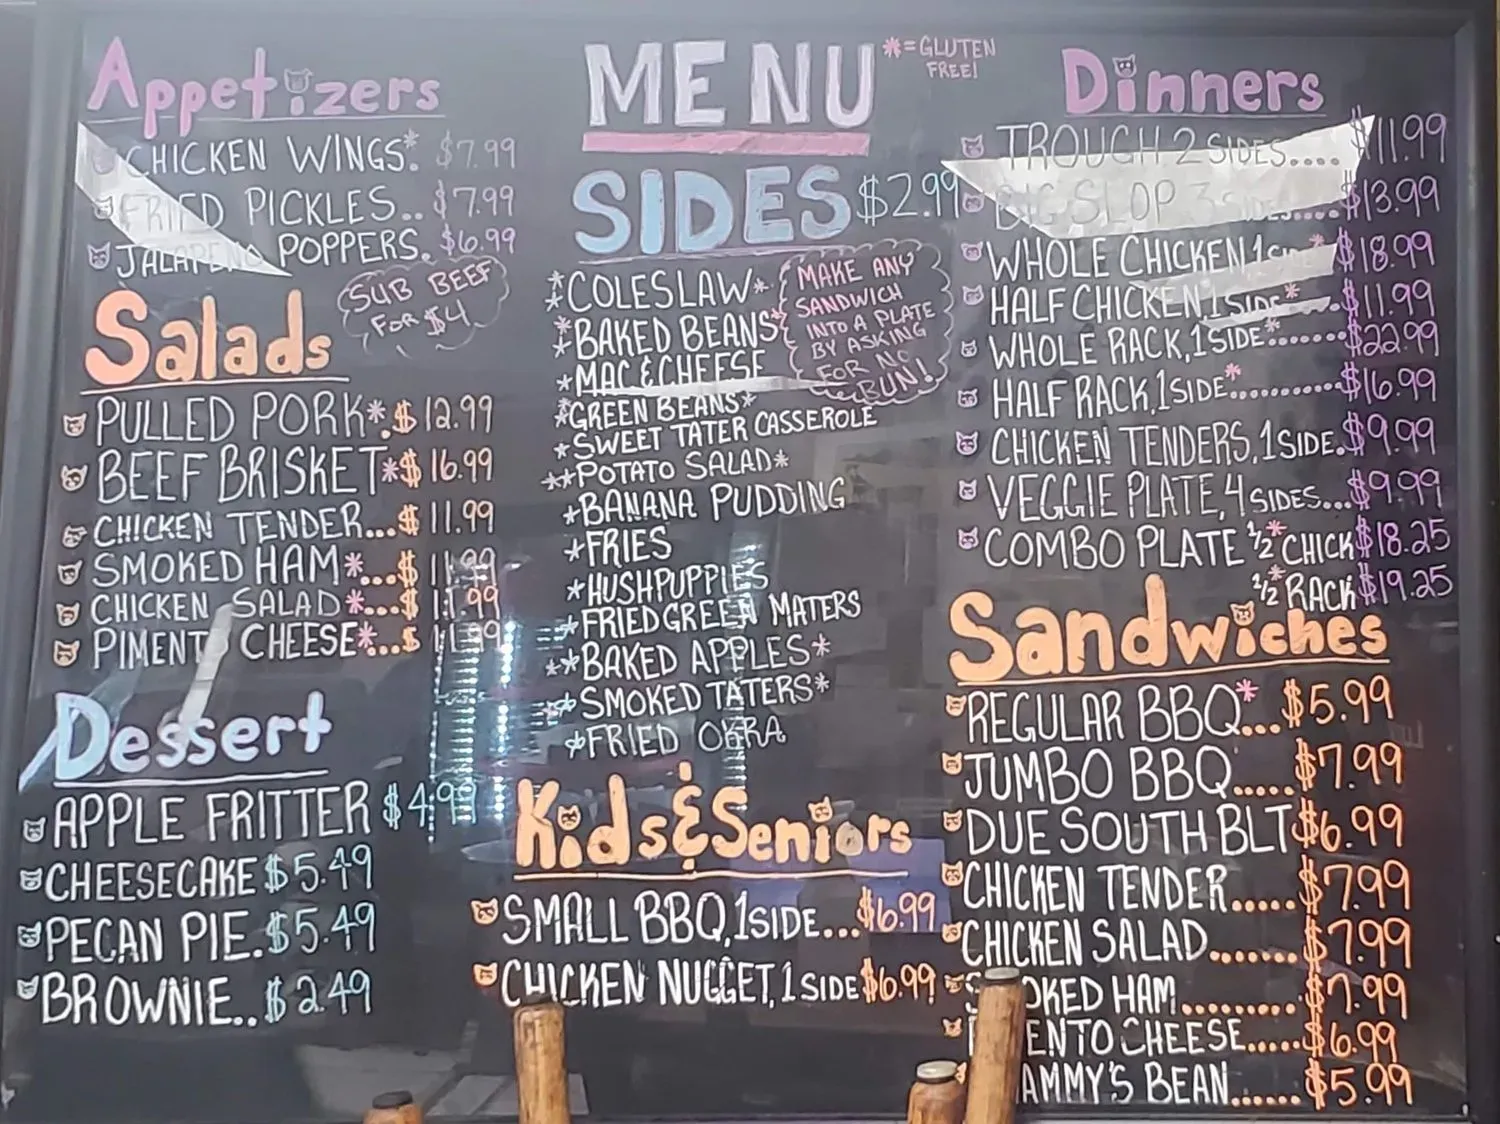 Appetizers
CHICKEN WINGS* $7.99
FRIED PICKLES.. $7.99
JALAPENO POPPERS. $6.99
SUB BEEF
FOR $4
Salads
PULLED PORK*.$12.99
BEEF BRISKET*$16.99
CHICKEN TENDER...$11.99
SMOKED HAM*...$11.99
CHICKEN SALAD*...$11.99
PIMENTO CHEESE*...$11.99
Dessert
APPLE FRITTER $4.99
CHEESECAKE $5.49
PECAN PIE.$5.49
BROWNIE..$2.49
MENU
*=GLUTEN
FREE!
SIDES $2.99
*COLESLAW*
*BAKED BEANS*
*MAC & CHEESE
*GREEN BEANS*
*SWEET TATER CASSEROLE
**POTATO SALAD*
*BANANA PUDDING
*FRIES
*HUSHPUPPIES
*FRIED GREEN MATERS
**BAKED APPLES*
*SMOKED TATERS*
*FRIED OKRA
MAKE ANY
SANDWICH
INTO A PLATE
BY ASKING
FOR NO
BUN!
Kids & Seniors
SMALL BBQ, 1 SIDE...$6.99
CHICKEN NUGGET, 1 SIDE $6.99
Dinners
TROUGH 2 SIDES....$11.99
BIG SLOP 3 SIDES....$13.99
WHOLE CHICKEN, 1 SIDE* $18.99
HALF CHICKEN, 1 SIDE* $11.99
WHOLE RACK, 1 SIDE*.......$22.99
HALF RACK, 1 SIDE*..........$16.99
CHICKEN TENDERS, 1 SIDE.$9.99
VEGGIE PLATE, 4 SIDES...$9.99
COMBO PLATE 1/2* CHICK $18.25
1/2* RACK $19.25
Sandwiches
REGULAR BBQ*...$5.99
JUMBO BBQ.....$7.99
DUE SOUTH BLT $6.99
CHICKEN TENDER.....$7.99
CHICKEN SALAD.......$7.99
OKED HAM.........$7.99
ENTO CHEESE.....$6.99
AMMY'S BEAN......$5.99